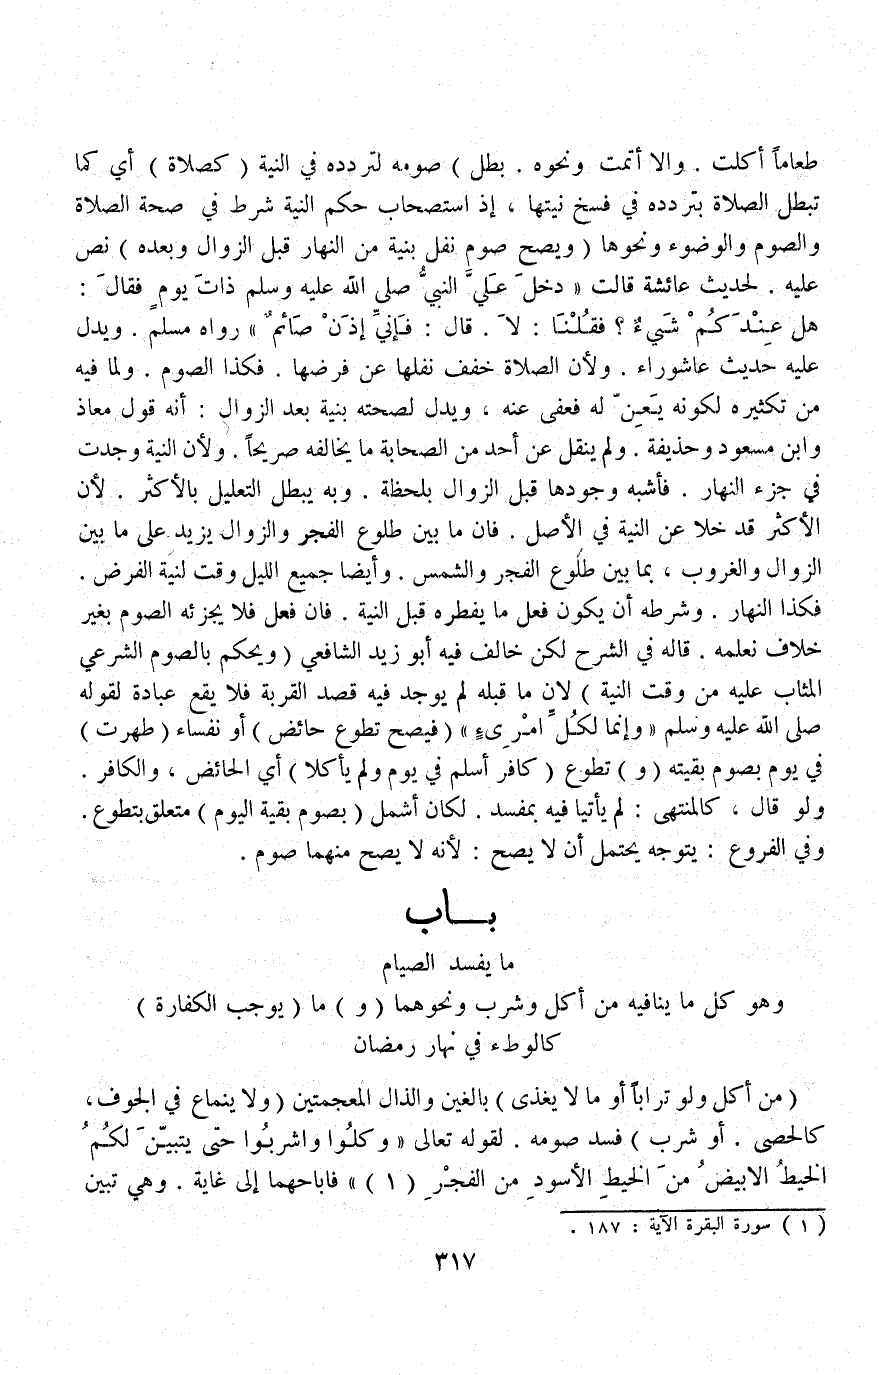 طعاماً أكلت . والا أتمت ونحوه . بطل ) صومه لتردده في النية ( كصلاة ) أي كما
تبطل الصلاة بتردده في فسخ نيتها ، إذ استصحاب حكم النية شرط في صحة الصلاة
والصوم والوضوء ونحوها ( ويصح صوم نفل بنية من النهار قبل الزوال وبعده ) نص
عليه . لحديث عائشة قالت « دخلَ عَليَّ النبيُّ صلى الله عليه وسلم ذاتَ يومٍ فقالَ :
هل عِنْدَكُمْ شَيءٌ ؟ فقُلْنَا : لاَ . قال : فَإنيِّ إذَنْ صَائمٌ » رواه مسلم . ويدل
عليه حديث عاشوراء . ولأن الصلاة خفف نفلها عن فرضها . فكذا الصوم . ولما فيه
من تكثيره لكونه يَعِنّ له فعفى عنه ، ويدل لصحته بنية بعد الزوال : أنه قول معاذ
وابن مسعود وحذيفة . ولم ينقل عن أحد من الصحابة ما يخالفه صريحاً . ولأن النية وجدت
في جزء النهار . فأشبه وجودها قبل الزوال بلحظة . وبه يبطل التعليل بالأكثر . لأن
الأكثر قد خلا عن النية في الأصل . فان ما بين طلوع الفجر والزوال يزيد على ما بين
الزوال والغروب ، بما بين طلوع الفجر والشمس . وأيضا جميع الليل وقت لنية الفرض .
فكذا النهار . وشرطه أن يكون فعل ما يفطره قبل النية . فان فعل فلا يجزئه الصوم بغير
خلاف نعلمه . قاله في الشرح لكن خالف فيه أبو زيد الشافعي ( ويحكم بالصوم الشرعي
المثاب عليه من وقت النية ) لان ما قبله لم يوجد فيه قصد القربة فلا يقع عبادة لقوله
صلى الله عليه وسلم « وإنما لكُلِّ امْرِىءٍ » ( فيصح تطوع حائض ) أو نفساء ( طهرت )
في يوم بصوم بقيته ( و ) تطوع ( كافر أسلم في يوم ولم يأكلا ) أي الحائض ، والكافر .
ولو قال ، كالمنتهى : لم يأتيا فيه بمفسد . لكان أشمل ( بصوم بقية اليوم ) متعلق بتطوع .
وفي الفروع : يتوجه يحتمل أن لا يصح : لأنه لا يصح منهما صوم .
بــاب
ما يفسد الصيام
وهو كل ما ينافيه من أكل وشرب ونحوهما ( و ) ما ( يوجب الكفارة )
كالوطء في نهار رمضان
( من أكل ولو تراباً أو ما لا يغذى ) بالغين والذال المعجمتين ( ولا ينماع في الجوف ،
كالحصى . أو شرب ) فسد صومه . لقوله تعالى « وكلُوا واشربُوا حتى يتبيّنَ لكُمُ
الخيطُ الابيضُ منَ الخيطِ الأسودِ من الفجْرِ ( ١ ) » فاباحهما إلى غاية . وهي تبين
( ١ ) سورة البقرة الآية : ١٨٧ .
٣١٧